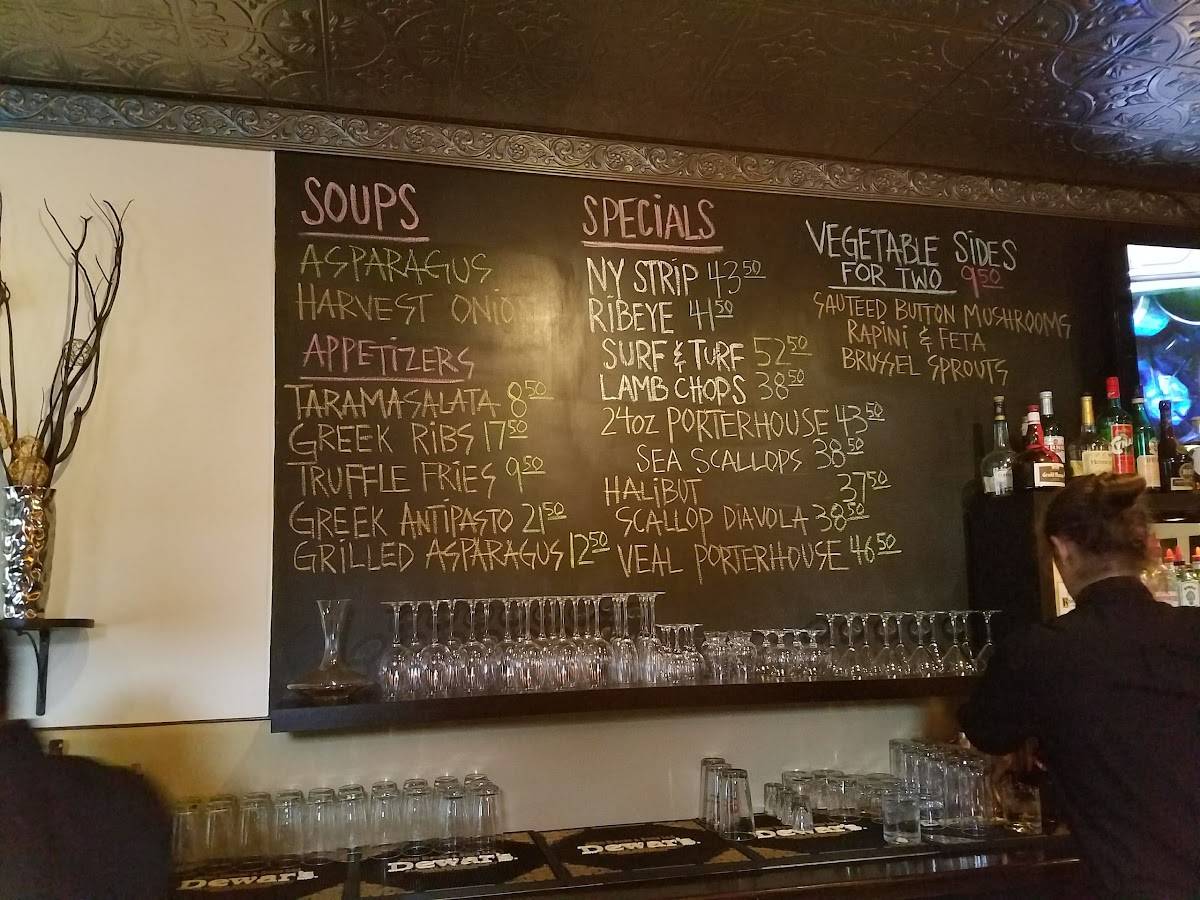 SOUPS
ASPARAGUS
HARVEST ONION
APPETIZERS
TARAMASALATA 8 50
GREEK RIBS 17 50
TRUFFLE FRIES 9 50
GREEK ANTIPASTO 21 50
GRILLED ASPARAGUS 12 50
SPECIALS
NY STRIP 43 50
RIBEYE 41 50
SURF & TURF 52 50
LAMB CHOPS 38 50
24oz PORTERHOUSE 43 50
SEA SCALLOPS 38 50
HALIBUT 37 50
SCALLOP DIAVOLA 38 50
VEAL PORTERHOUSE 46 50
VEGETABLE SIDES
FOR TWO 9 50
SAUTEED BUTTON MUSHROOMS
RAPINI & FETA
BRUSSEL SPROUTS
Dewar's
Dewar's
Dewar's
Dewar's